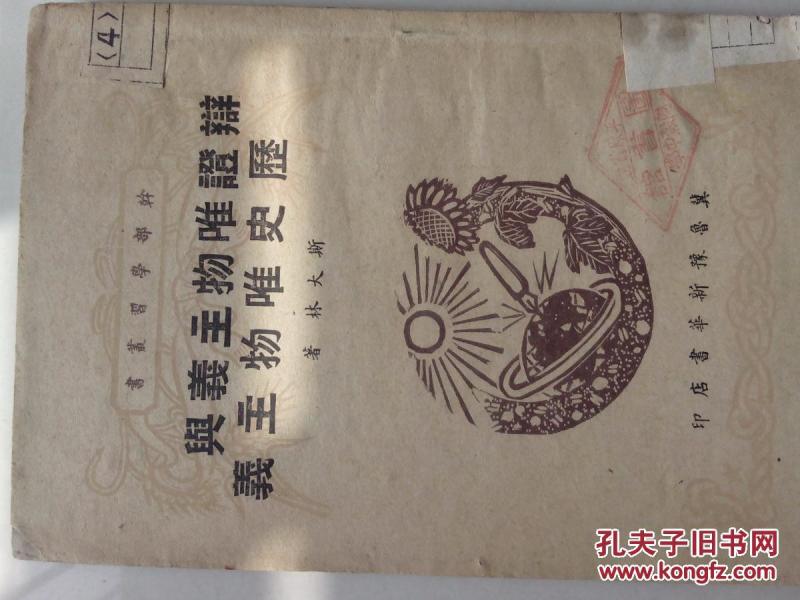 〈4〉
幹部學習叢書
辯證唯物主義與
歷史唯物主義
斯大林 著
冀魯豫新華書店印
圖書館
孔夫子旧书网
www.kongfz.com